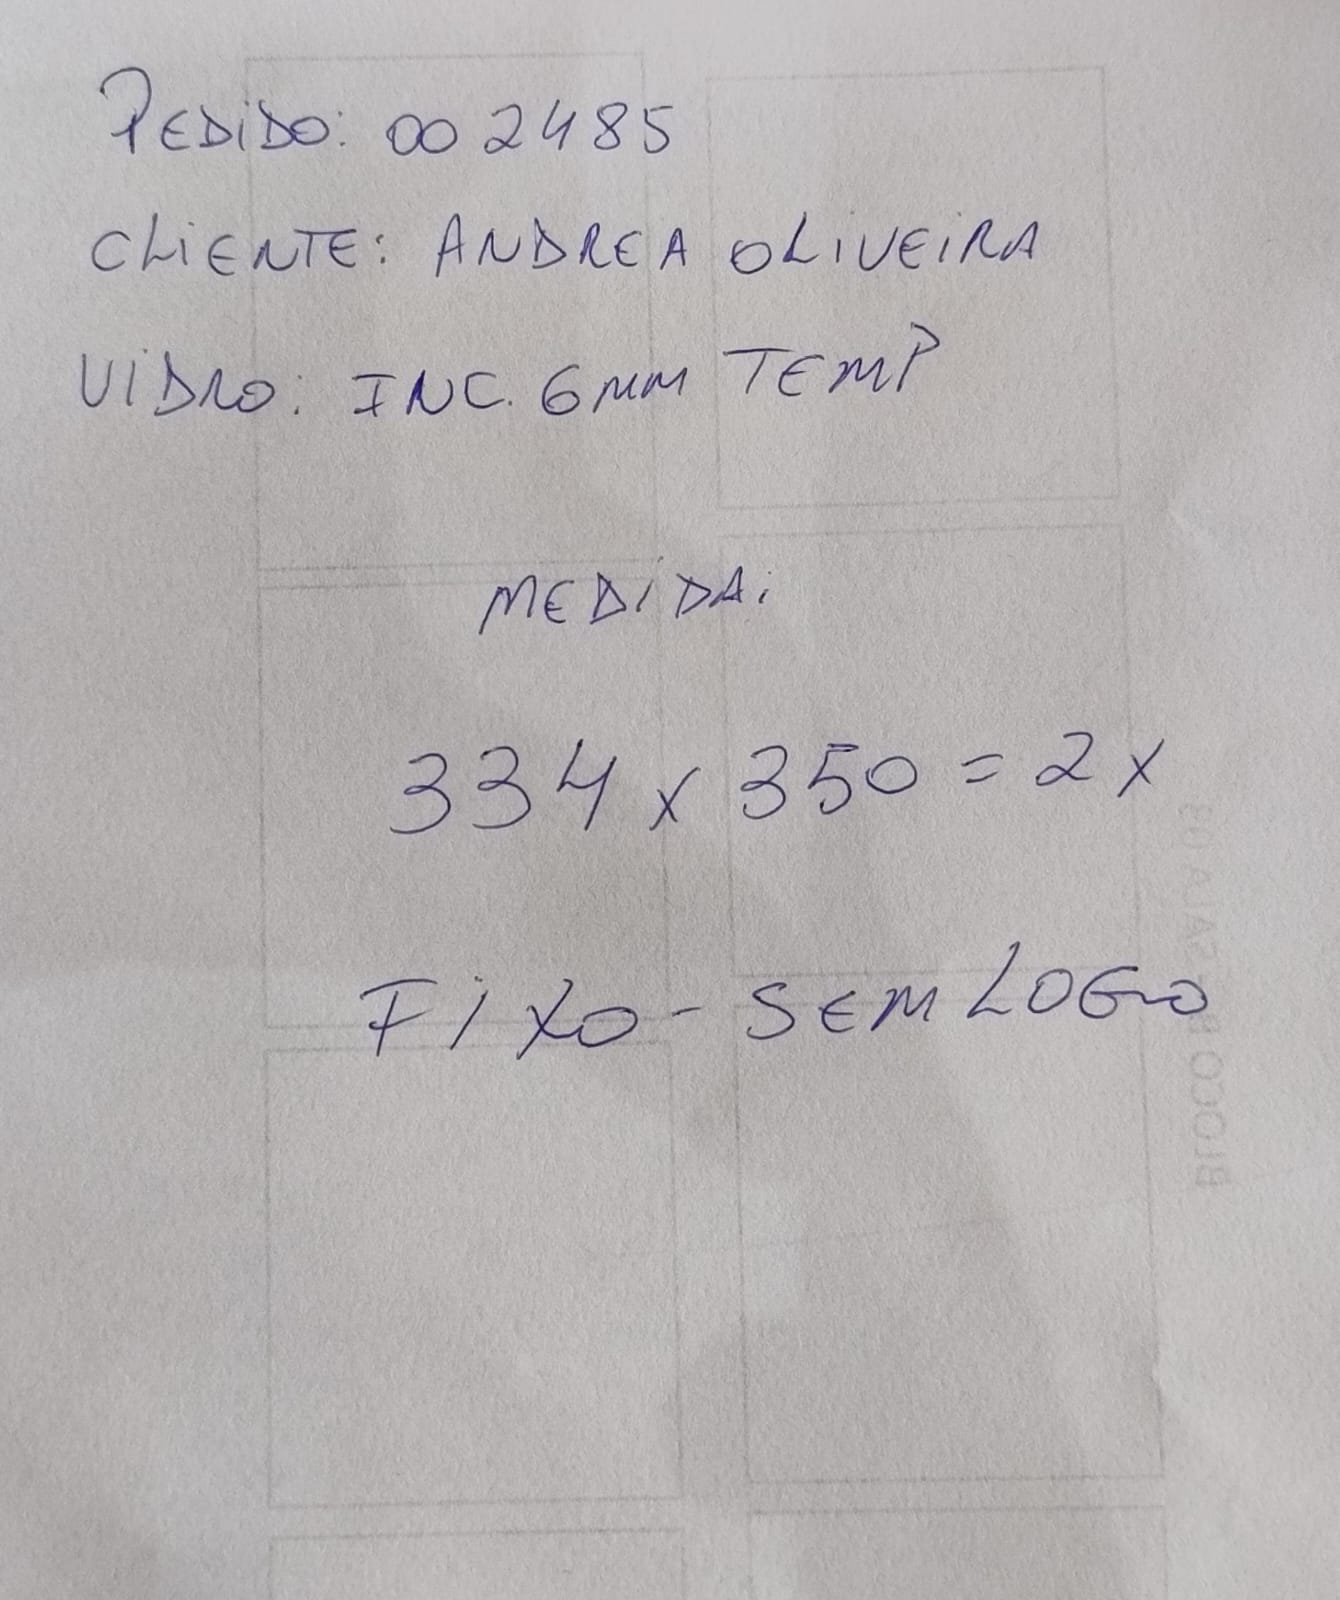 PEDIDO: 002485
CLIENTE: ANDREA OLIVEIRA
VIDRO: INC. 6MM TEMP
MEDIDA:
334 x 350 = 2x
FIXO - SEM LOGO